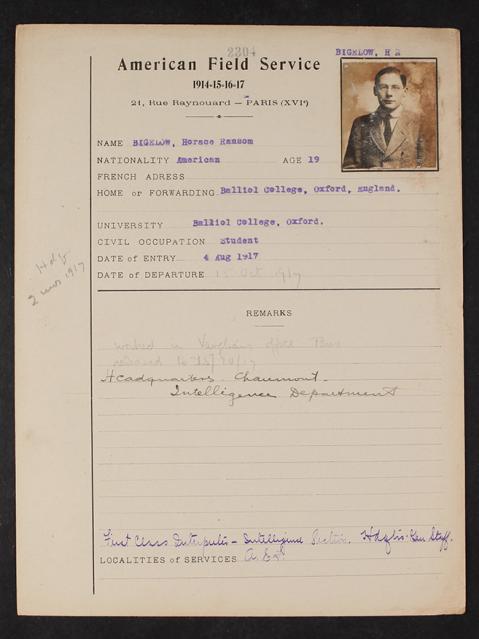 2304
BIGELOW, H R
American Field Service
1914-15-16-17
21, Rue Raynouard — PARIS (XVIe)
NAME BIGELOW, Horace Ransom
NATIONALITY American AGE 19
FRENCH ADRESS
HOME or FORWARDING Balliol College, Oxford, England.
UNIVERSITY Balliol College, Oxford.
CIVIL OCCUPATION Student
DATE of ENTRY 4 Aug 1917
DATE of DEPARTURE 15 Oct 1917
Hdq
2 mos 1917
REMARKS
worked in office
released
Headquarters Chaumont.
Intelligence Department
First Class Interpreter - Intelligence Section. Hdqtrs. Gen Staff.
LOCALITIES of SERVICES A.E.F.